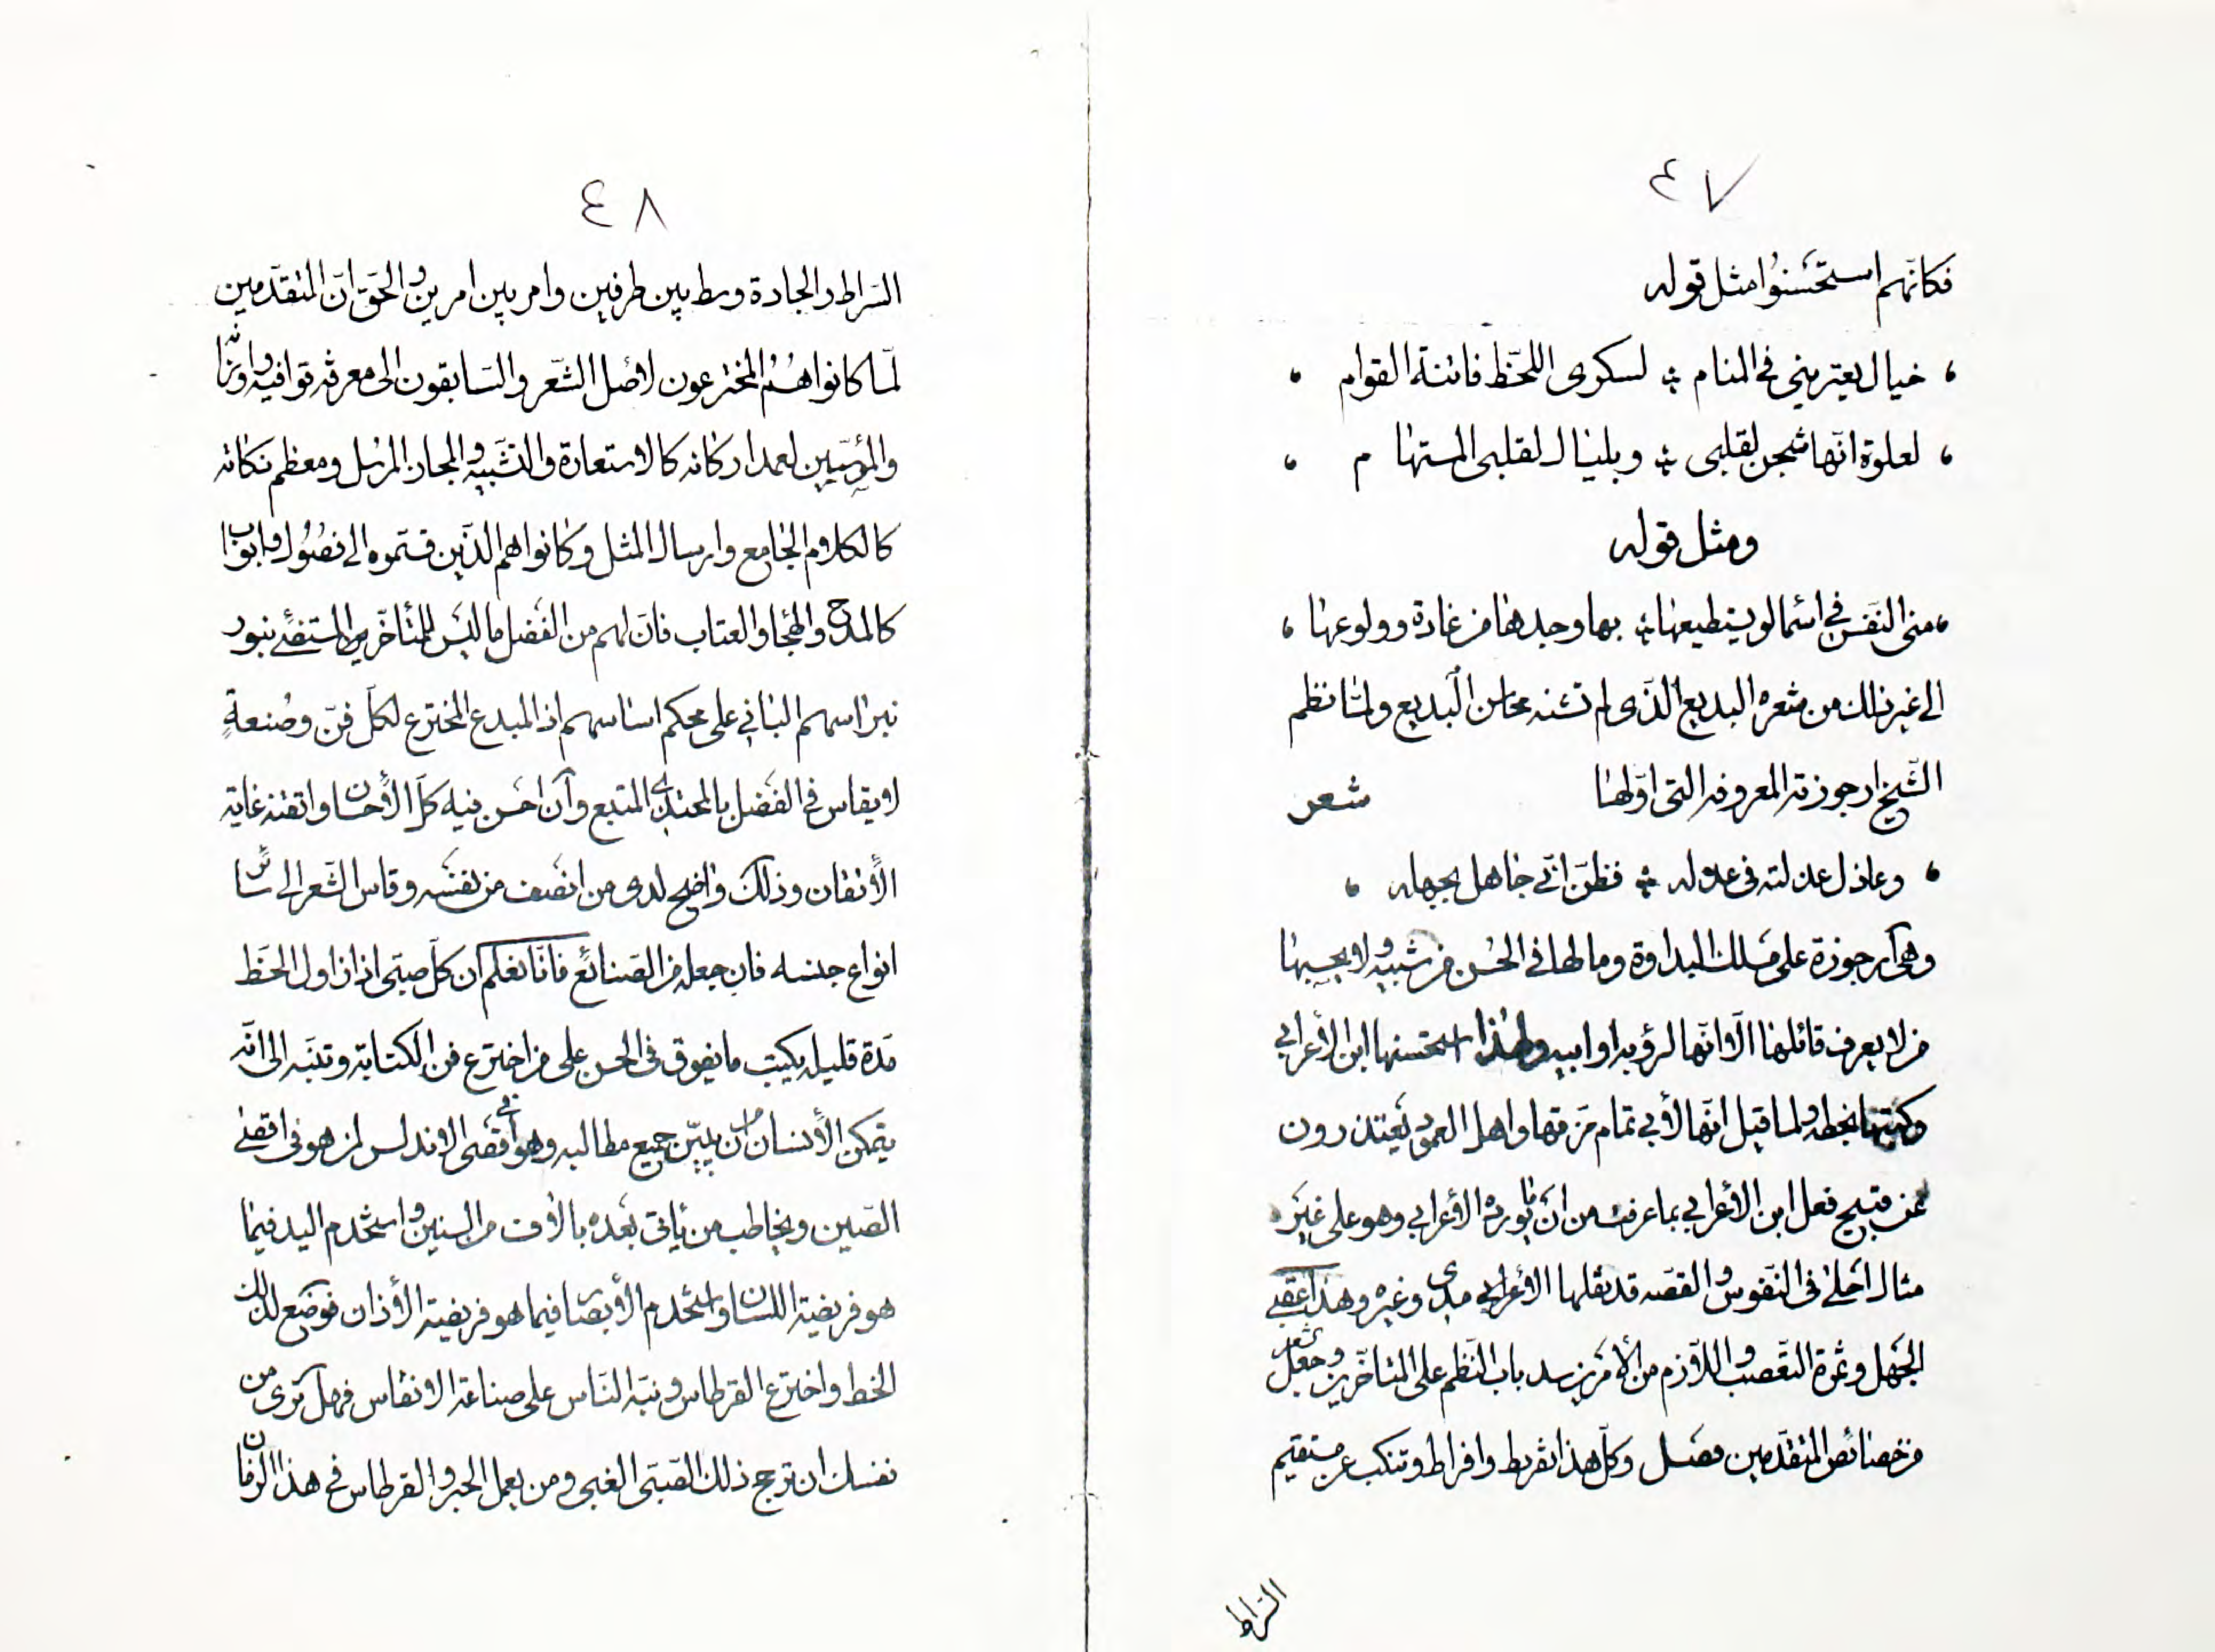 ٤٧
فكانّهم استحسَنوُا مثل قوله
، خيال يعتريني في المنام ؛ لسكرى اللحّظ فاتنة القوام ،
، لعلوة انّها شجن لقلبي ؛ وبلبال لقلبي المستهام ،
ومثل قوله
، منى النّفس في اسماء لو يستطيعها ؛ بها وجدها من غادة وولوعها ،
الى غير ذلك من شعره البديع الذّى لم تشنه محاسن البديع ولمّا نظم
الشّيخ ارجوزته المعروفه التى اوّلها شعر
، وعاذل عذلته في عذله ؛ فظنّ انّي جاهل بجهله ،
وهى ارجوزة على مسلك البداوة وما لها في الحُسن من شبيه ولا يحسبها
من لا يعرف قائلها الّا انّها لرؤبه او ابيه ولهذا استحسنها ابن الأعرابي
وكتبها بخطه ولما قيل انّها لأبي تمام مَزقها واهل العمود يَعتذرون
عن قبيح فعل ابن الأعرابي بما عرفت من انّ الأعرابي وهو على غير
مثال احلى في النّفوس والقصّه قد نقلها الأعرابي وغيره وهذا
الجَهل وثمرة التعّصب واللّازم من الأمرين سد باب النّظم على المتأخّرين وجعل الشعر
من خصائص المتقدّمين فصل وكلّ هذا تفريط وافراط وتنكب عن مستقيم
السّراط
٤٨
السّراط والجادة وسط بين طرفين وامر بين امرين والحَق انّ المتقدّمين
لمّا كانوا هُم المخترعون لأصل الشّعر والسّابقون الى معرفة قوافيه واوزانه
والمؤسّسين لعمد اركانه كالاستعارة والتشّبيه والمجاز المرُسل ومعظم نكاته
كالكلام الجامع وارسال المثل وكانوا هم الذّين قسّموه الى فصُول وابواب
كالمدح والهجاء والعتاب فانّ لهم من الفَضل ما ليَس للمتأخّرين المستضئ بنور
نبراسهم الباني على محكم اساسهم اذ المبدع المخترع لكلّ فنّ وصُنعةٍ
لا يقاس في الفَضل بالمحتذي المتبع وان احَسن فيه كلّ الأحسان واتقنه غاية
الأتقان وذلك واضح لدى من انصَف من نفسَه وقاس الشّعر الى سائر
انواع جنسه فان جعله من الصّنائع فانّا نعلم ان كلّ صبّى اذا زاول الخط
مَدة قليله يكتب ما يفوق في الحسن على من اخترع فن الكتابة وتنبّه الى انّه
يتمكن الأنسان من ان يبيّن جميع مطالبه وهو في اقَصى الاندلس لمن هو في اقصى
الصّين ويخاطب من يأتي بَعده بالأُلوف من السنين واستخدم اليد فيما
هو فريضة اللسان واستخدم الأبصَار فيما هو فريضة الأذان فوضَع لذلك
الخط واخترع القرطاس ونبّه النّاس على صناعة الانقاس فهل تَرى من
نفسك ان ترجح ذلك الصّبَى الغبى ومن يعمل الحبر والقرطاس في هذا الزمان